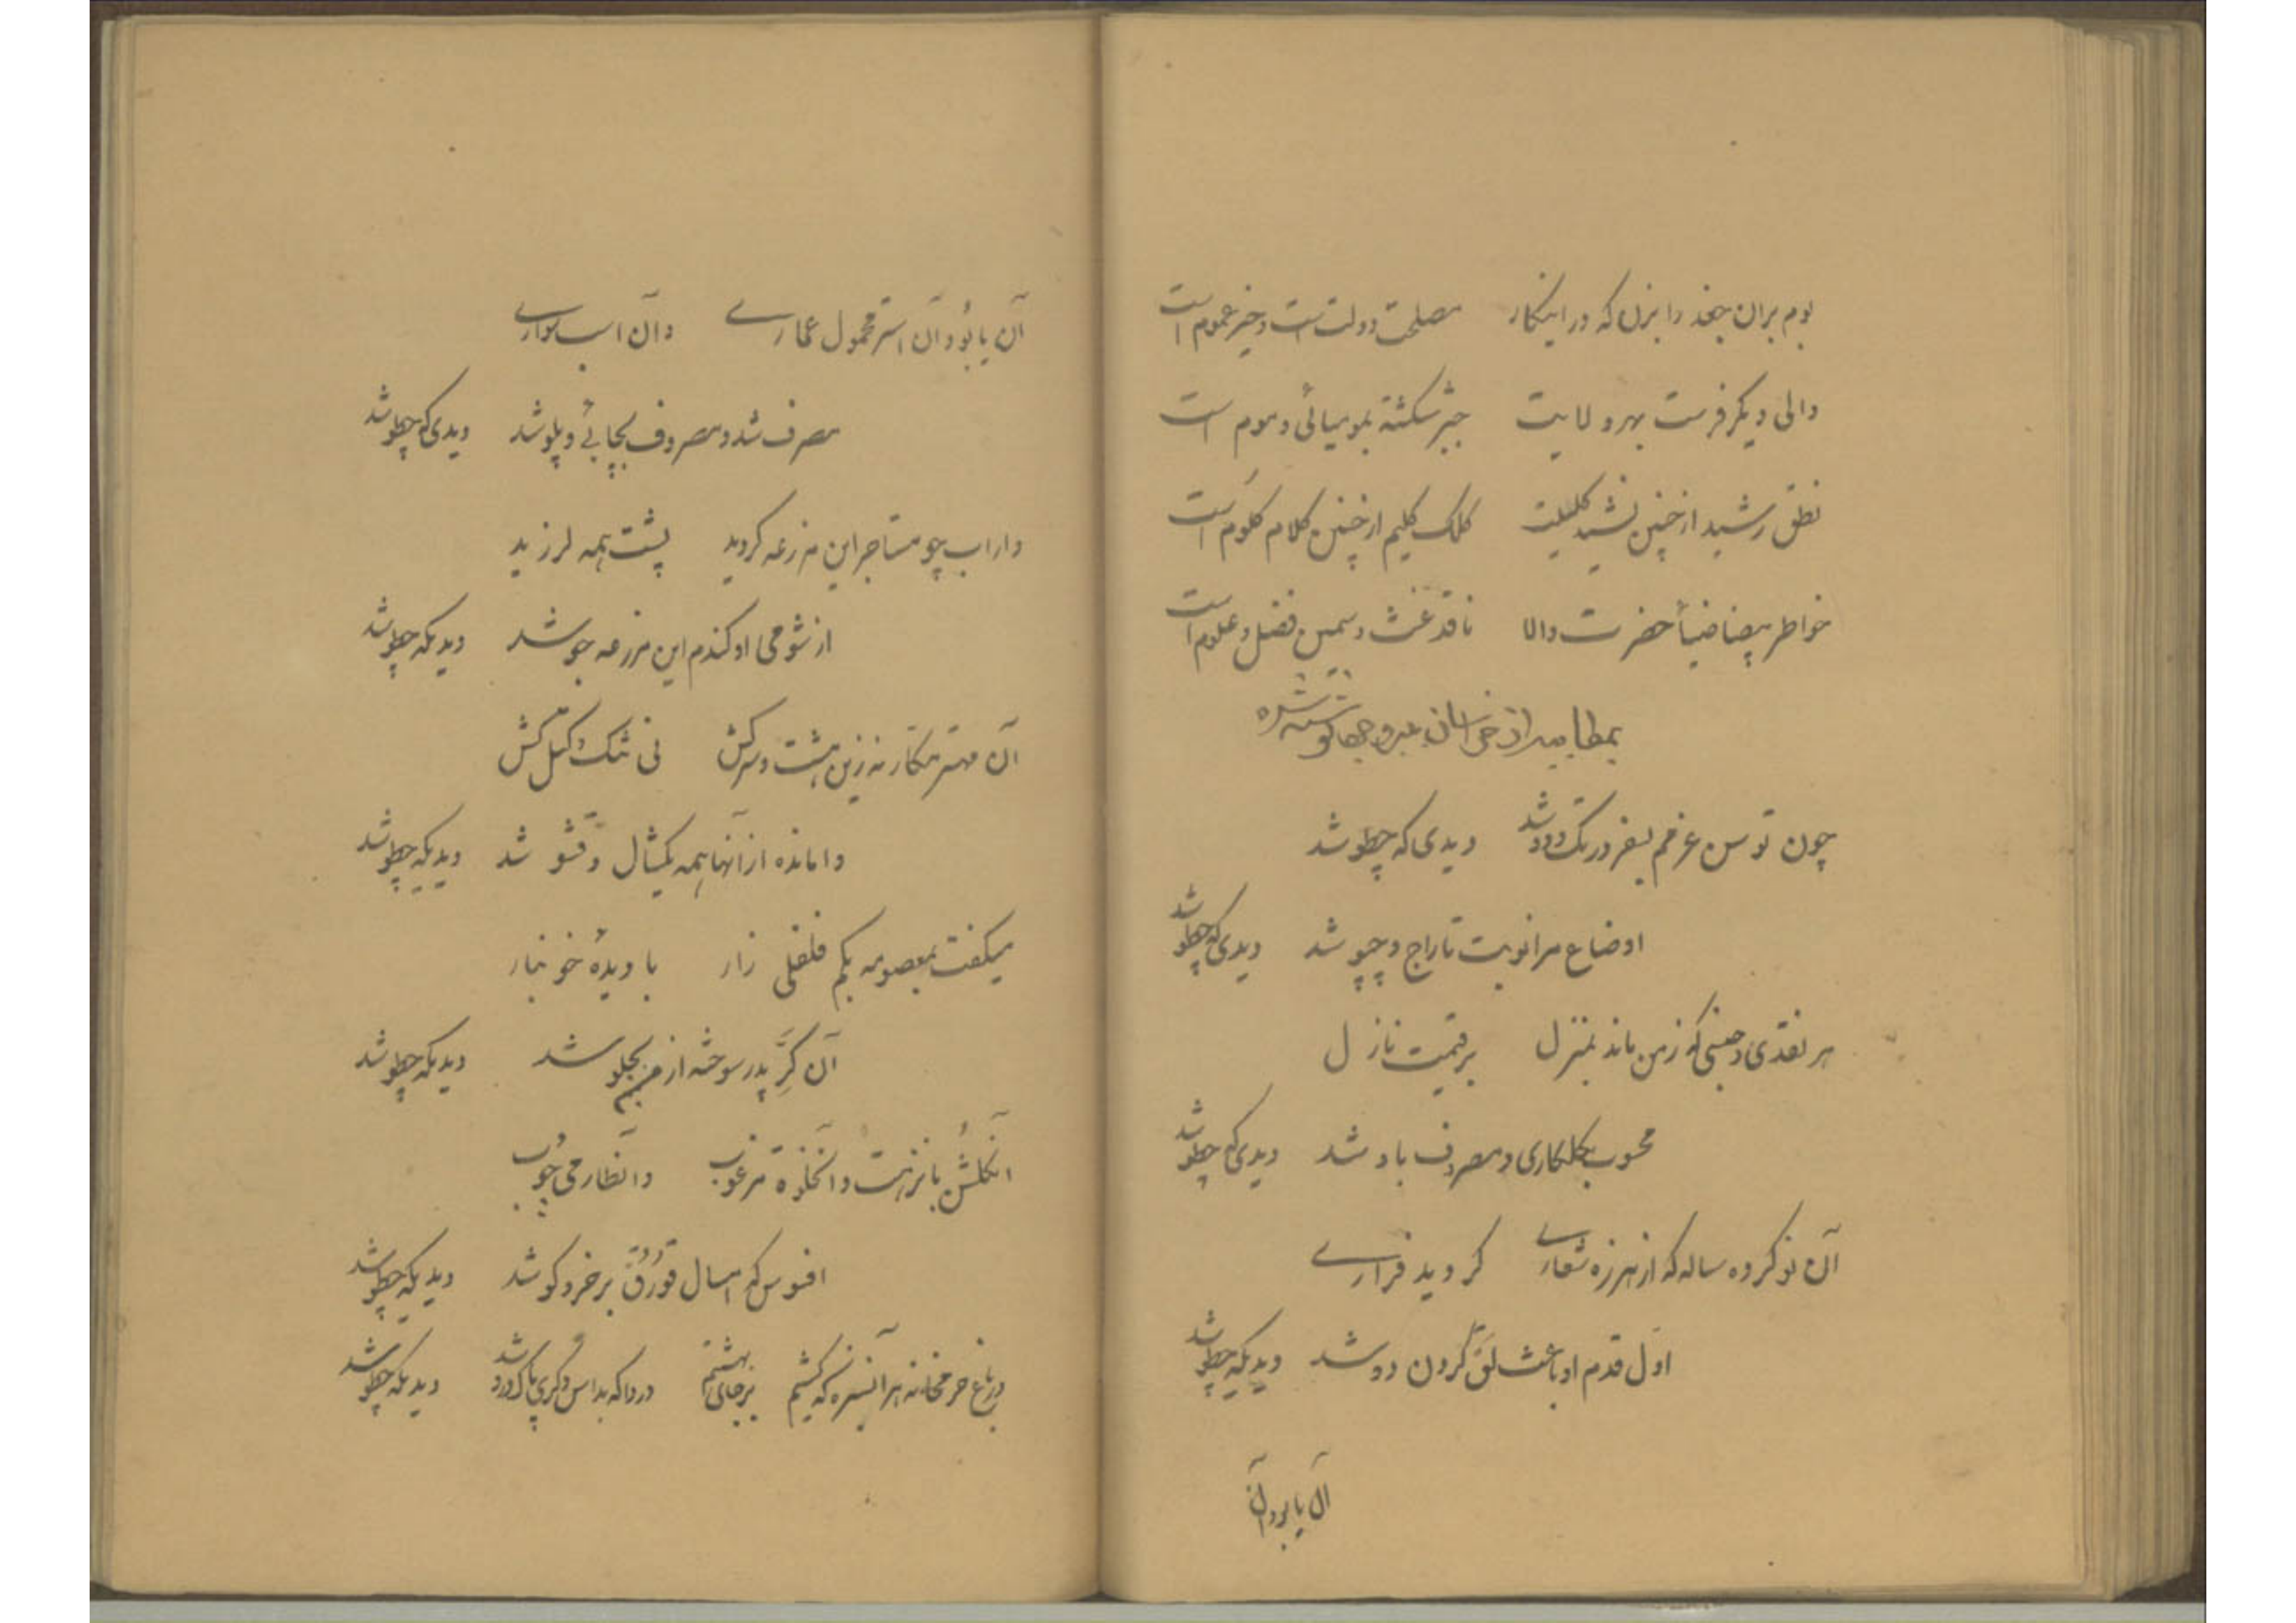 بوم بران جغد را بزن که در اینکار مصلحت دولت است و خیر عموم است
والی دیگر فرست بهر ولایت جبر شکسته بمومیائی و موم است
نطق رشید از چنین نشید کلیلست کلک کلیم از چنین کلام کلوم است
خواطر بیضا ضیأ حضرت والا ناقد غث و سمین فضل و علوم است
بمطایبه از خراسان به نوشته شده
چون توسن عزمم بسفر در تک و دو شد دیدی که چطو شد
اوضاع مرا نوبت تاراج و چپو شد دیدی که چطو شد
هر نقدی و جنسی که ز من ماند بمنزل بر قیمت نازل
محسوب بگلکاری و مصرف باد شد دیدی که چطو شد
آن نوکر ده ساله که از هرزه شعاری گردید فراری
اول قدم او باعث لق کردن دو شد دیدیکه چطو شد
آن یابو و آن
آن یابو و آن استر محمول عماری و آن اسب سواری
صرف شد و مصروف بچائی و پلو شد دیدی که چطو شد
داراب چو مستاجر این مزرعه گردید پشت همه لرزید
از شومی او گندم این مزرعه جو شد دیدیکه چطو شد
آن مهتر مکار نه زین هشت و نه سرکش نی تنگ و نکل کش
وامانده از آنها همه یکشال و قشو شد دیدیکه چطو شد
میگفت بمعصومه بگم فلفلی زار با دیدهٔ خونبار
آن کره پدر سوخته از من بجلو شد دیدیکه چطو شد
آن گلشن با نزهت و آن خلوت مرغوب و آن طارمی چوب
افسوس که امسال قورق بر خر و گو شد دیدیکه چطو شد
در باغ حرمخانه هر آن سبزه که کشتیم بر جای بهشتیم دردا که بداس دگری پاک درو شد دیدیکه چطو شد